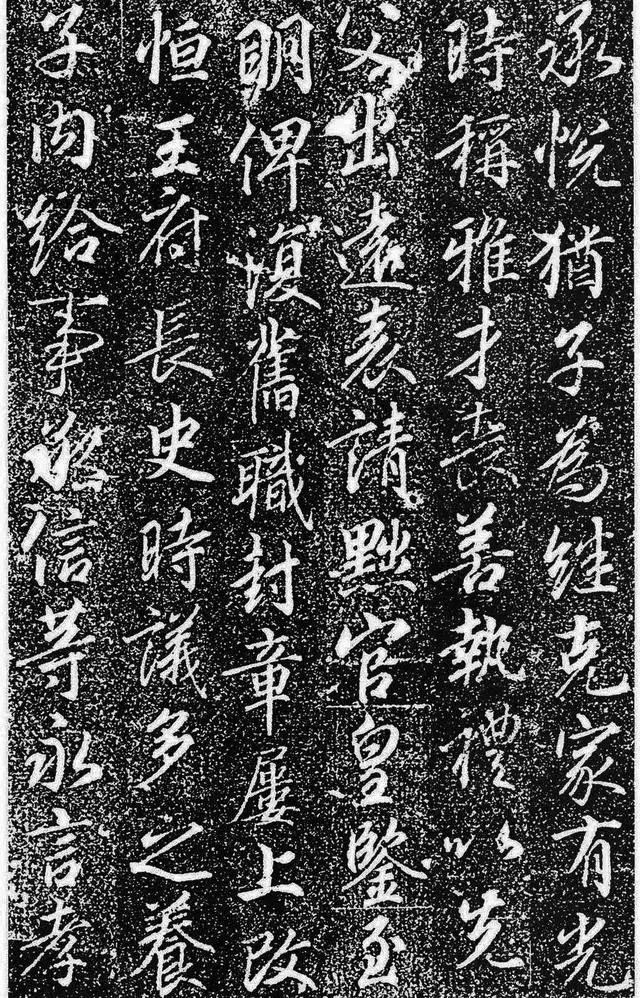 承悦猶子為継克家有光
時稱雅才喪善執禮以先
父出遠表請黜官皇鑒至
明俾復舊職封章屢上改
恒王府長史時議多之養
子内給事承信等永言孝